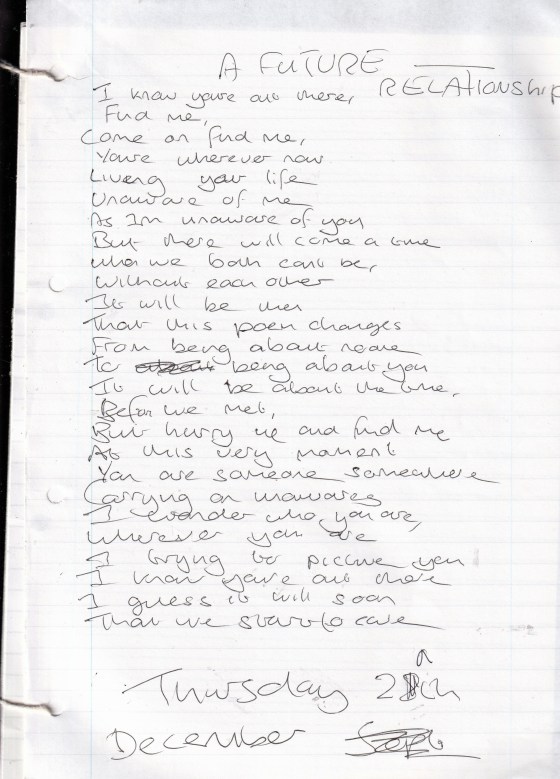 A FUTURE
RELATIONSHIP
I know youre out there,
Find me,
Come on find me,
Youre wherever now
Living your life
Unaware of me
As Im unaware of you
But there will come a time
when we both cant be,
Without each other
It will be then
That this poem changes
From being about noone
To being about you
It will be about the time,
Before we met,
But hurry up and find me
At this very moment
You are someone somewhere
Carrying on unawares
I wonder who you are,
Wherever you are
I trying to picture you
I know youre out there
I guess it will soon
That we start to care
Thursday
December